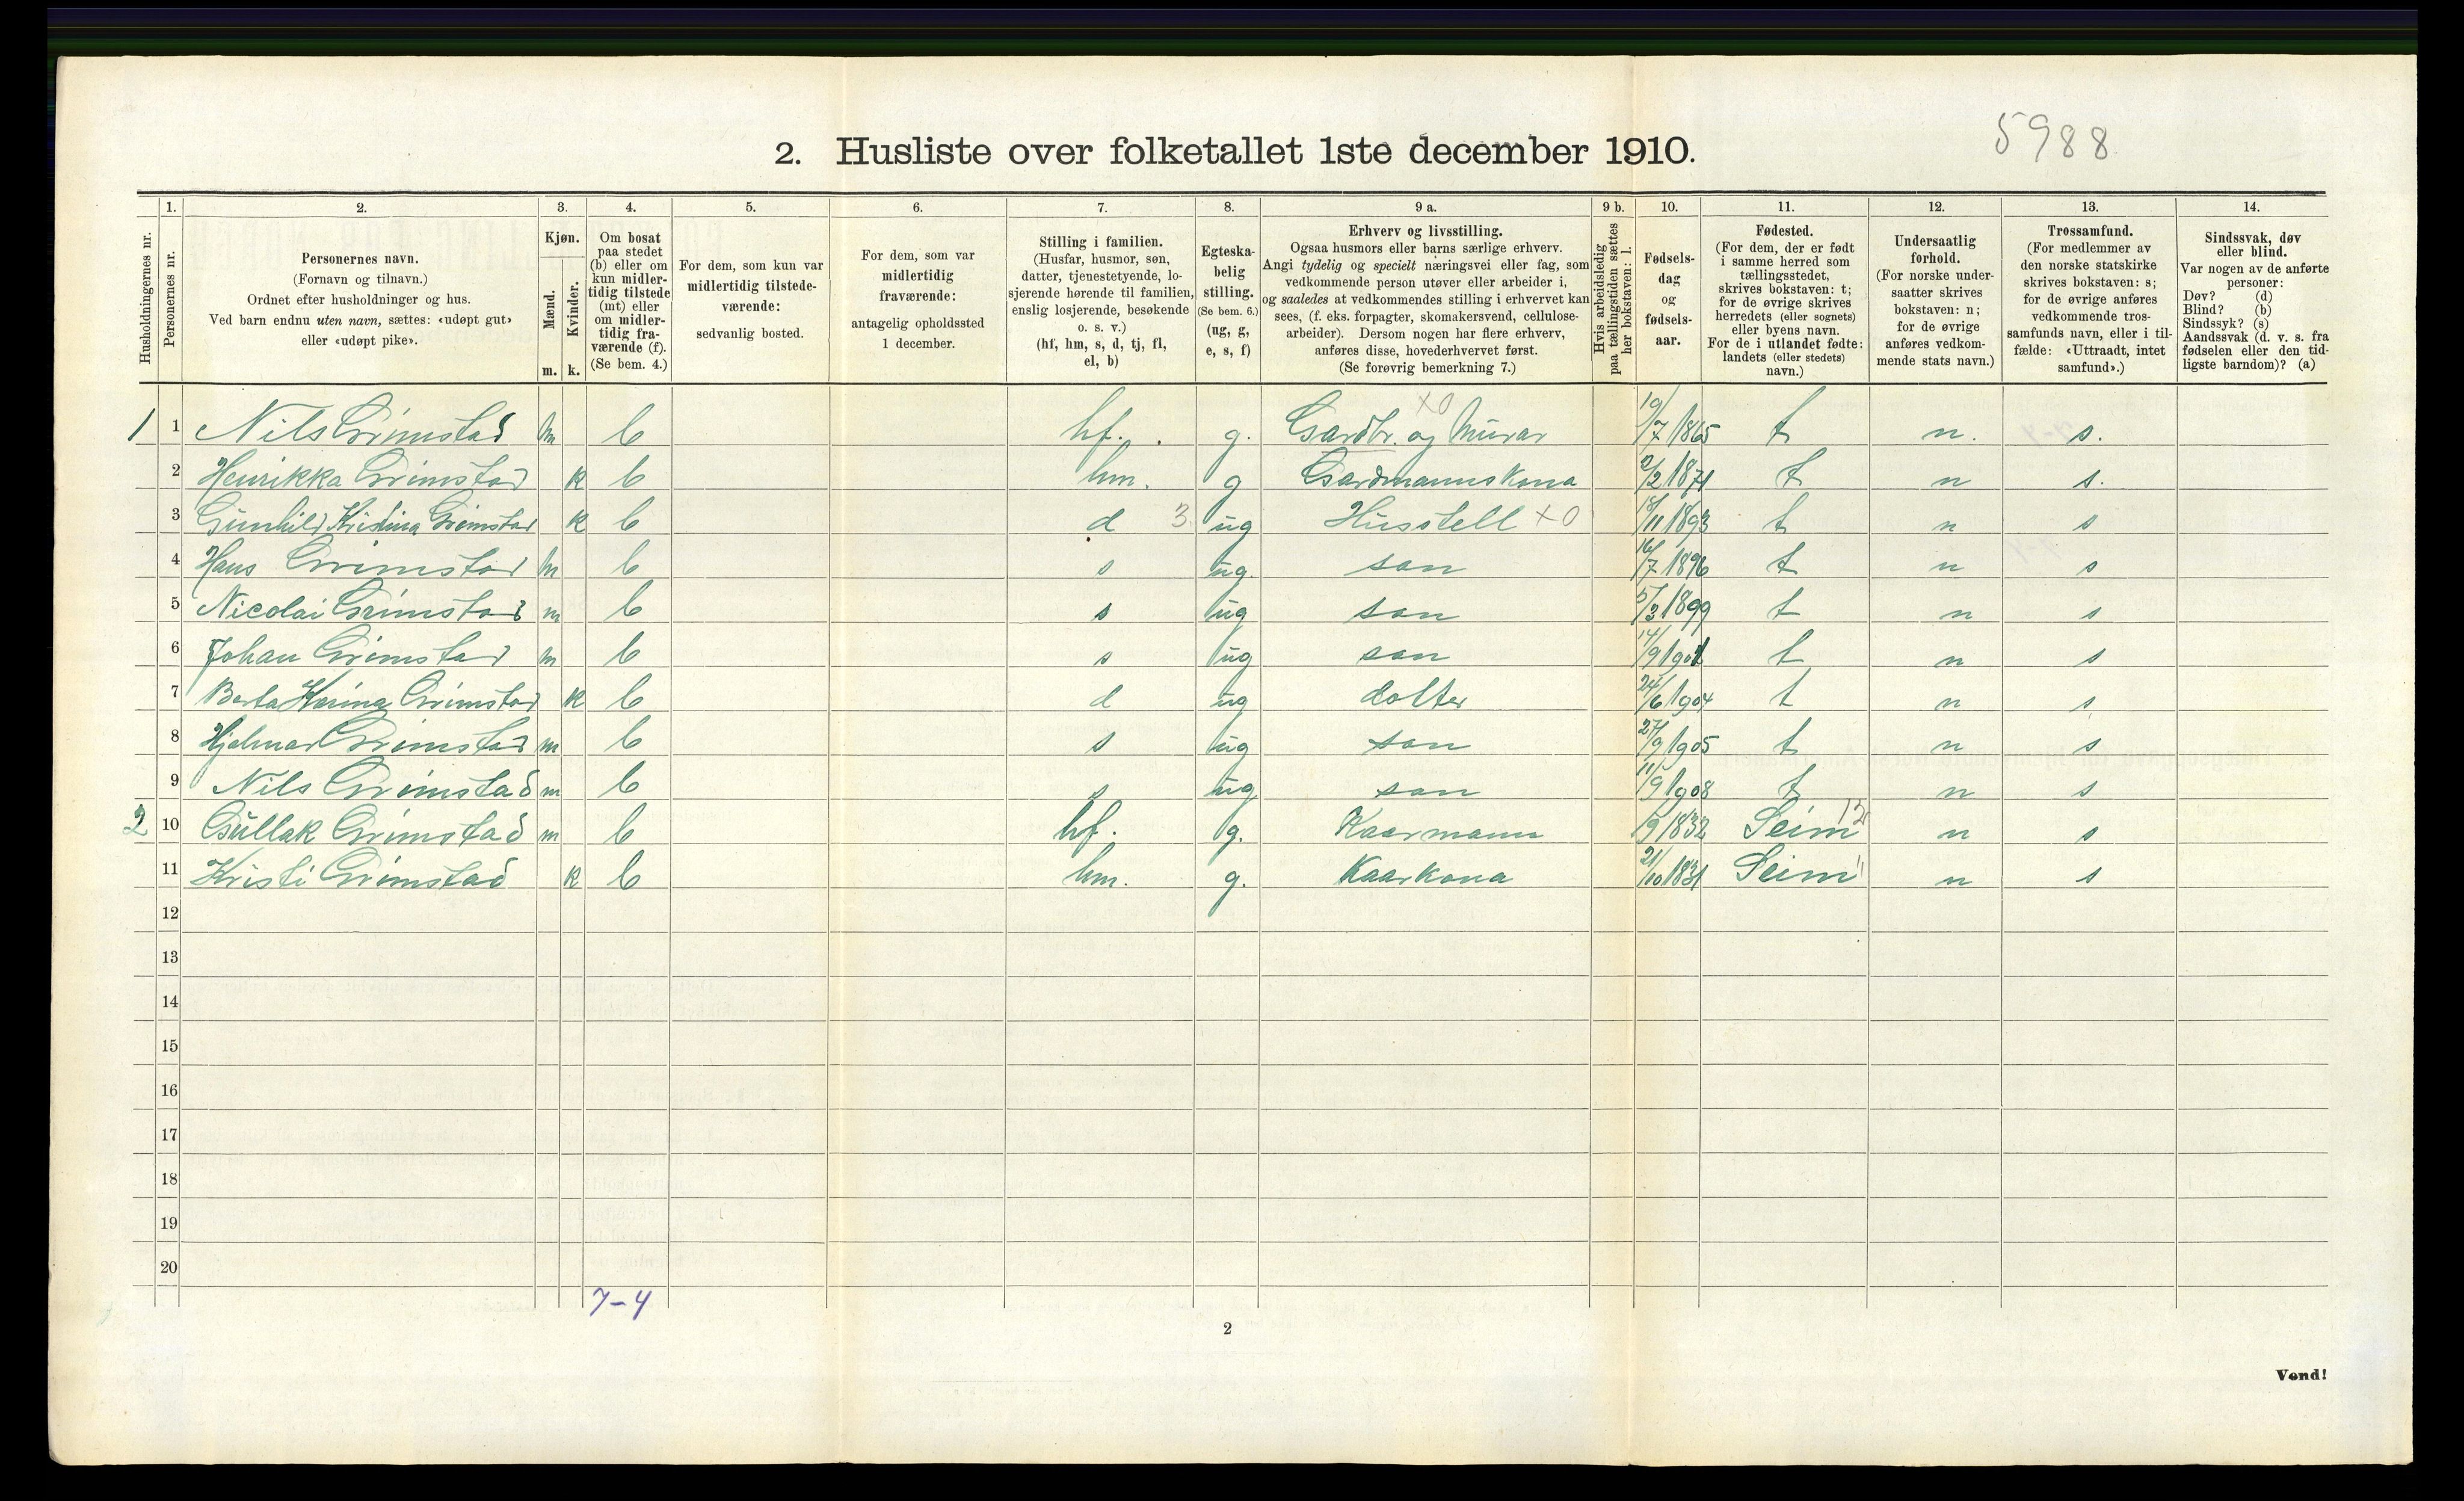 5988
2. Husliste over folketallet 1ste december 1910.
Husholdningernes nr.
1.
Personernes nr.
2.
Personernes navn.
(Fornavn og tilnavn.)
Ordnet efter husholdninger og hus.
Ved barn endnu uten navn, sættes: «udøpt gut»
eller «udøpt pike».
3.
Kjøn.
Mænd.
Kvinder.
m. k.
4.
Om bosat
paa stedet
(b) eller om
kun midler-
tidig tilstede
(mt) eller
om midler-
tidig fra-
værende (f).
(Se bem. 4.)
5.
For dem, som kun var
midlertidig tilstede-
værende:
sedvanlig bosted.
6.
For dem, som var
midlertidig
fraværende:
antagelig opholdssted
1 december.
7.
Stilling i familien.
(Husfar, husmor, søn,
datter, tjenestetyende, lo-
sjerende hørende til familien,
enslig losjerende, besøkende
o. s. v.)
(hf, hm, s, d, tj, fl,
el, b)
8.
Egteska-
belig
stilling.
(Se bem. 6.)
(ug, g,
e, s, f)
9 a.
Erhverv og livsstilling.
Ogsaa husmors eller barns særlige erhverv.
Angi tydelig og specielt næringsvei eller fag, som
vedkommende person utøver eller arbeider i,
og saaledes at vedkommendes stilling i erhvervet kan
sees, (f. eks. forpagter, skomakersvend, cellulose-
arbeider). Dersom nogen har flere erhverv,
anføres disse, hovederhvervet først.
(Se forøvrig bemerkning 7.)
9 b.
Hvis arbeidsledig
paa tællingstiden sættes
her bokstaven: l.
10.
Fødsels-
dag
og
fødsels-
aar.
11.
Fødested.
(For dem, der er født
i samme herred som
tællingsstedet,
skrives bokstaven: t;
for de øvrige skrives
herredets (eller sognets)
eller byens navn.
For de i utlandet fødte:
landets (eller stedets)
navn.)
12.
Undersaatlig
forhold.
(For norske under-
saatter skrives
bokstaven: n;
for de øvrige
anføres vedkom-
mende stats navn.)
13.
Trossamfund.
(For medlemmer av
den norske statskirke
skrives bokstaven: s;
for de øvrige anføres
vedkommende tros-
samfunds navn, eller i til-
fælde: «Uttraadt, intet
samfund».)
14.
Sindssvak, døv
eller blind.
Var nogen av de anførte
personer:
Døv? (d)
Blind? (b)
Sindssyk? (s)
Aandssvak (d. v. s. fra
fødselen eller den tid-
ligste barndom)? (a)
1 1 Nils Grimstad m b hf. g. Gardbr. og Murar x0 19/7 1865 t n. s.
2 Henrikka Grimstad k b hm. g Gardmannskona 2/2 1871 t n s.
3 Gunhild Kristina Grimstad k b d 3 ug Husstell x0 18/11 1893 t n s
4 Hans Grimstad m b s ug. son 16/7 1896 t n s
5 Nicolai Grimstad m b s ug son 5/3 1899 t n s
6 Johan Grimstad m b s ug son 14/9 1901 t n s
7 Berta Karina Grimstad k b d ug dotter 24/6 1904 t n s
8 Hjalmar Grimstad m b s ug son 27/9 1905 t n s
9 Nils Grimstad m b s ug son 11/9 1908 t n s
2 10 Gullak Grimstad m b hf. g. Kaarmann /9 1832 Seim 12 n s
11 Kristi Grimstad k b hm. g. Kaarkona 21/10 1831 Seim " n s
12
13
14
15
16
17
18
19
20
7-4
2
Vend!